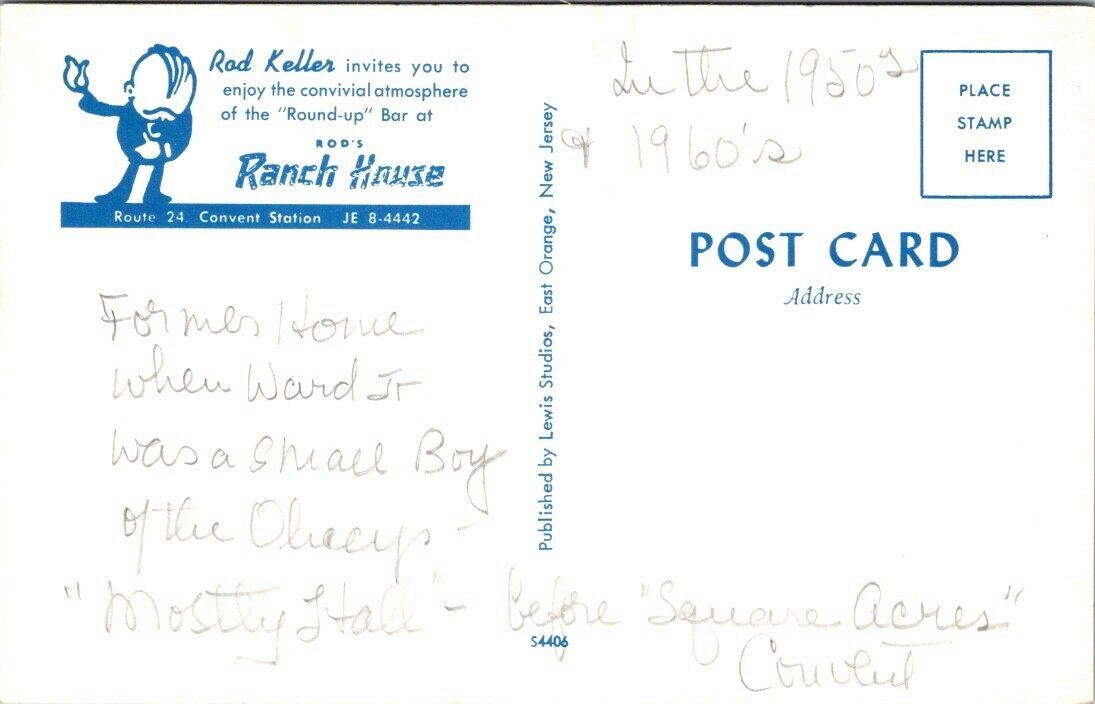 Rod Keller invites you to
enjoy the convivial atmosphere
of the "Round-up" Bar at
ROD'S
Ranch House
Route 24, Convent Station JE 8-4442
Former Home
when Ward Jr
was a small Boy
of the
"Mostly Hall" - before "Square Acres"
Convent
Published by Lewis Studios, East Orange, New Jersey
S4406
In the 1950s
& 1960's
PLACE
STAMP
HERE
POST CARD
Address